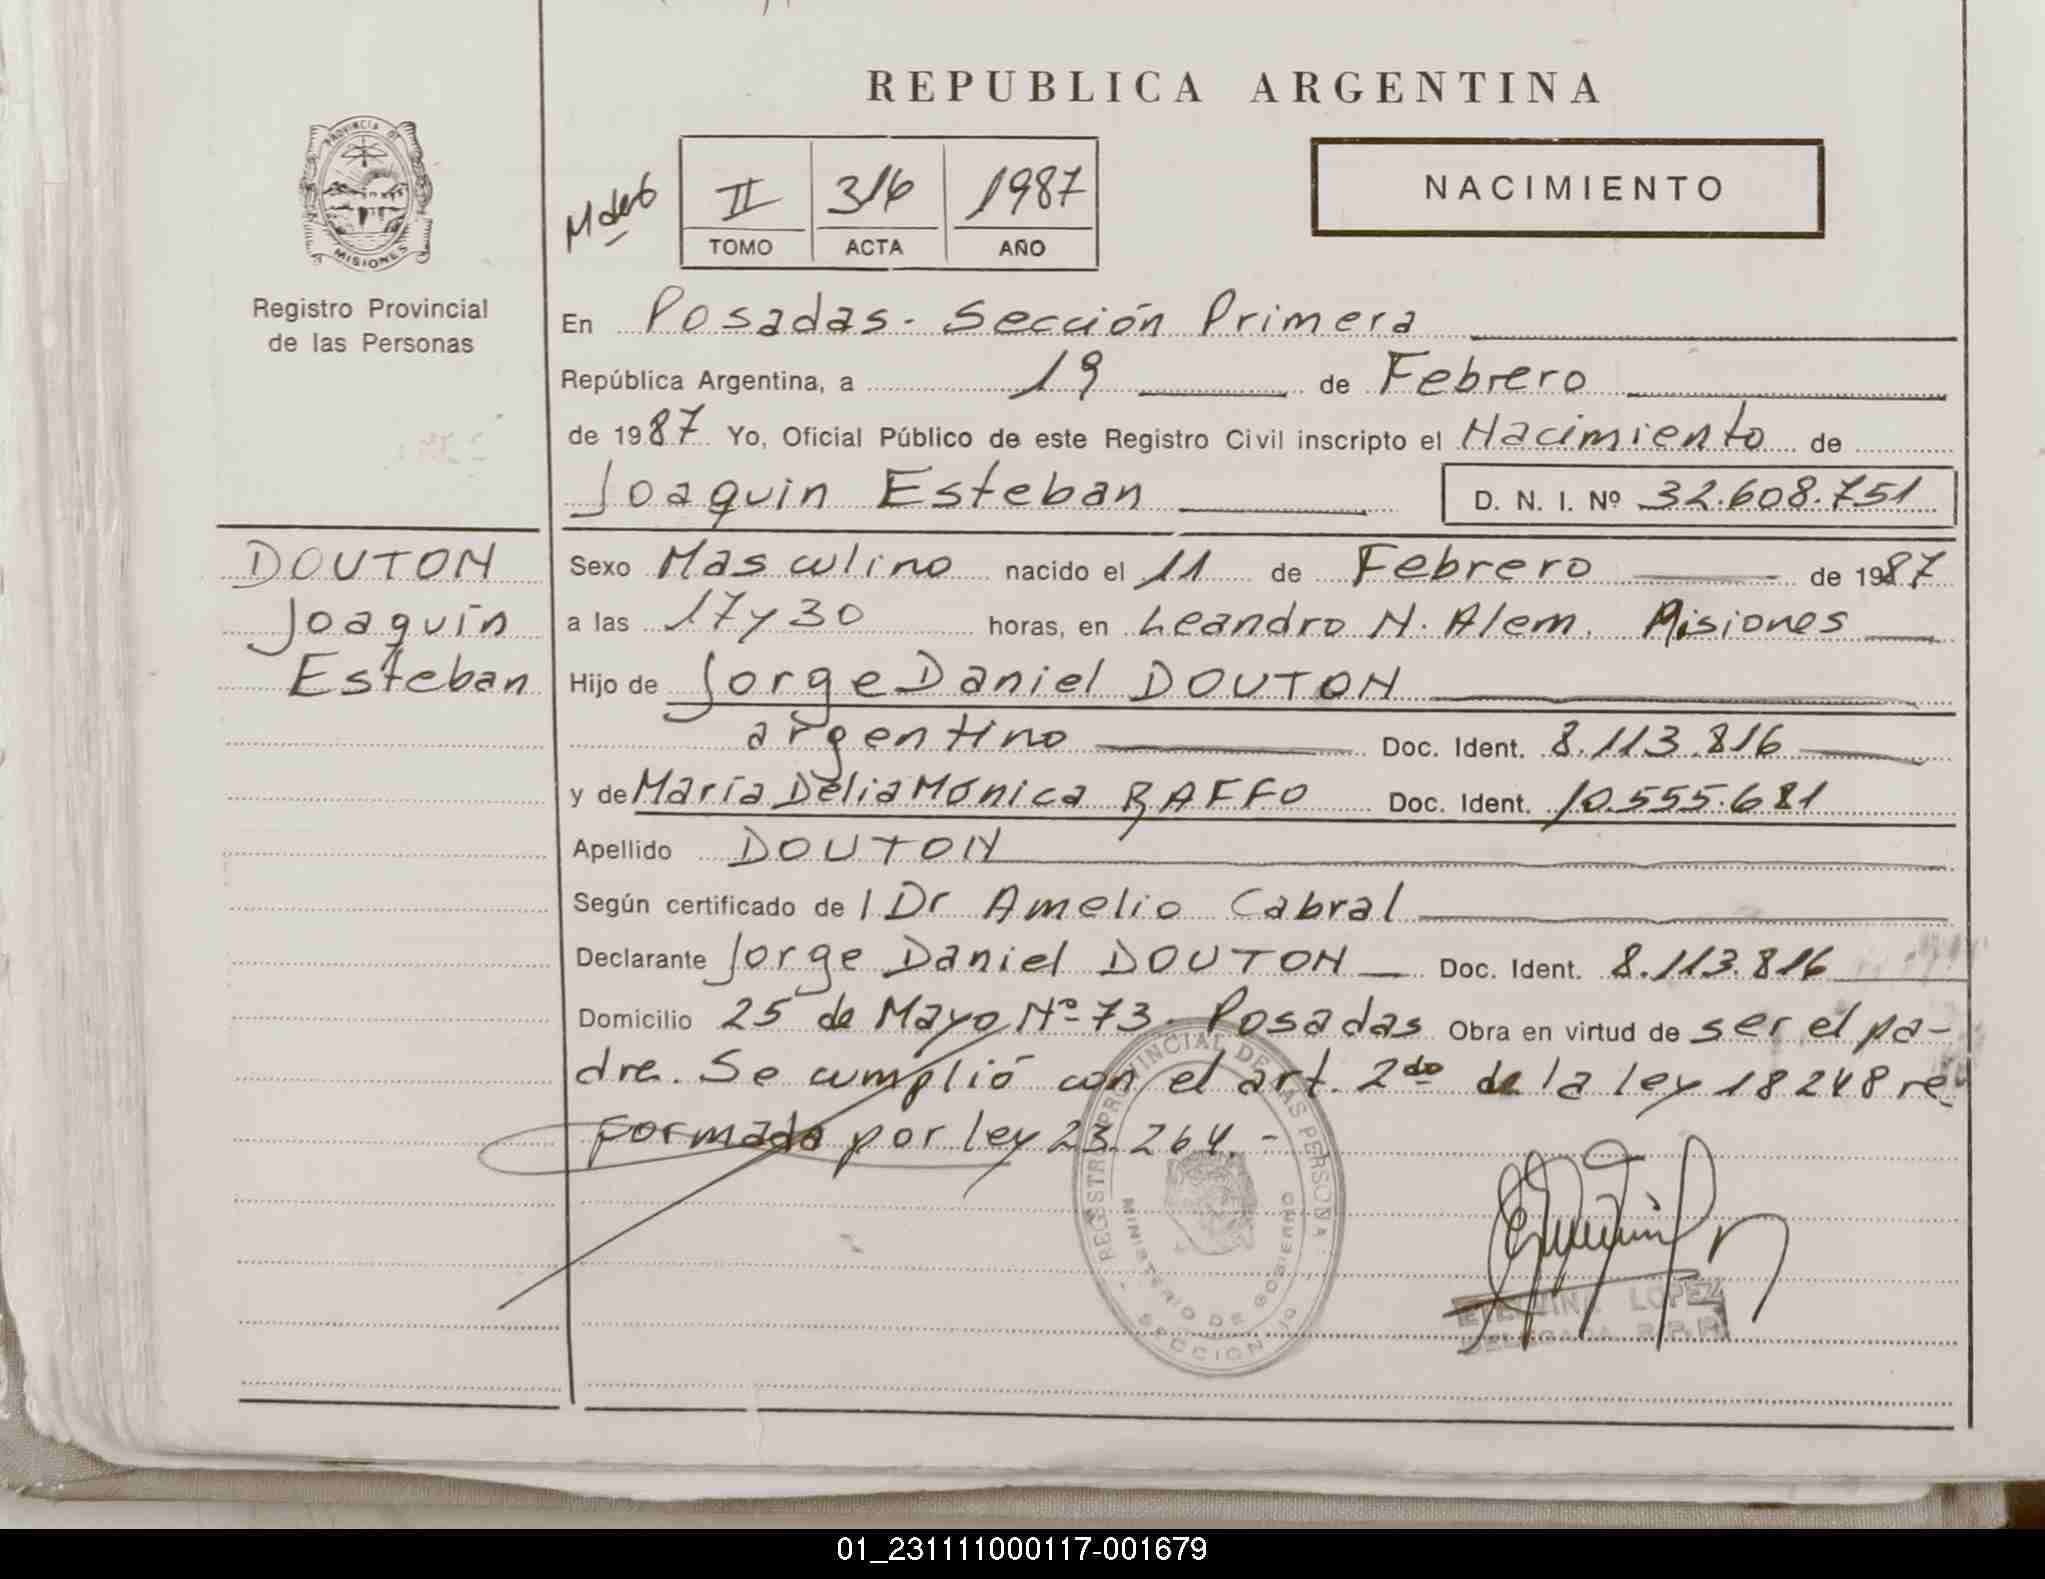 REPUBLICA ARGENTINA
PROVINCIA DE
MISIONES
Registro Provincial
de las Personas
II 316 1987
TOMO ACTA AÑO
NACIMIENTO
En Posadas. Sección Primera
República Argentina, a 19 de Febrero
de 1987 Yo, Oficial Público de este Registro Civil inscripto el Nacimiento de
Joaquin Esteban D. N. I. Nº 32.608.751
DOUTON
Joaquín
Esteban
Sexo Masculino nacido el 11 de Febrero de 1987
a las 17 y 30 horas, en Leandro N. Alem. Misiones
Hijo de Jorge Daniel DOUTON
argentino Doc. Ident. 8.113.816
y de María Delia Mónica RAFFO Doc. Ident. 10.555.681
Apellido DOUTON
Según certificado de l Dr Amelio Cabral
Declarante Jorge Daniel DOUTON Doc. Ident. 8.113.816
Domicilio 25 de Mayo Nº 73. Posadas Obra en virtud de ser el pa-
dre. Se cumplió con el art. 2do de la ley 18248 re-
formada por ley 23.264.-
REGISTRO PROVINCIAL DE LAS PERSONAS
MINISTERIO DE GOBIERNO
SECCION
LOPEZ
DELEGADA R.P.P.
01_231111000117-001679